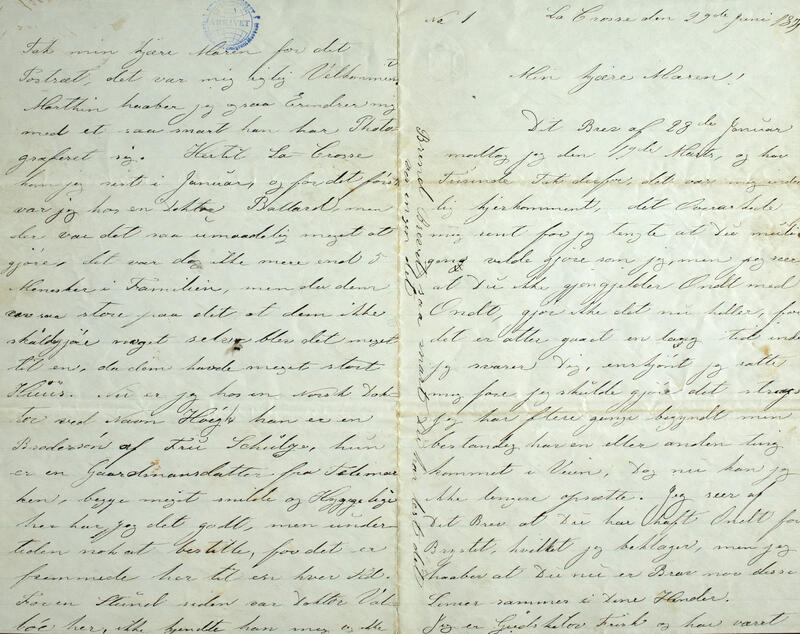 No 1 La Crosse den 29de Juni 18
Min kjære Maren!
Dit Brev af 28de Januar
modtog jeg den 19de Marts, og har
Tusinde Tak derfor, det var mig
lig kjerkomment, det
mig rent for jeg tengte at Du
gang vilde gjøre som jeg, men jeg seer
at Du ikke gjengjelder Ondt med
Ondt, gjør ikke det nu heller, for
det er atter gaaet en lang tid inden
jeg svarer Dig, enskjønt jeg satte
mig fore jeg skulde gjøre det strags
jeg har flere gange begyndt men
bestandig har en eller anden ting
kommet i Veien, Dog nu kan jeg
ikke lengere opsætte. Jeg seer af
Dit Brev at Du har haft Ondt for
Brystet, hvilket jeg beklager, men jeg
haaber at Du nu er Brav nor disse
Linier sammer i Dine Hender.
Jeg er Gudskelov Frisk og har været
Brend Brevet saa snart Du har læst det
saa ingen
ARKIVET
Tak min kjære Maren for det
Portræt, det var mig rigtig Velkommen
Marthin haaber jeg ogsaa Erindrer mig
med et saa snart han har Photo
graferet sig. Hertil La Crosse
kom jeg rest i Januar, og for det først
var jeg hos en Doktor Ballard, men
der var det saa umaadelig meget at
gjøre, det var dog ikke mere end 5
Menesker i Familien, men da dem
var saa store paa det at dem ikke
skulde gjøre noget selv blev det meget
til en, da dem havde meget stort
Huus. Nu er jeg hos en Norsk Dok-
tor ved Navn Høegh han er en
Brodersøn af Fru Schütze, hun
er en Gaardmansdatter fra Telemar
ken, begge meget snilde og Hyggelige
her har jeg det godt, men under-
tiden nok at bestille, for det er
fremmede her til en hver tid.
For en Stund siden var Doktor
her, ikke kjendte han mig og ikke